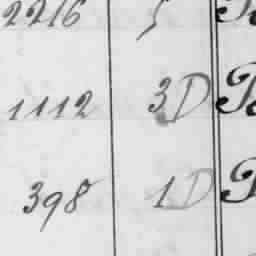 2216 5
1112 3D
398 1D